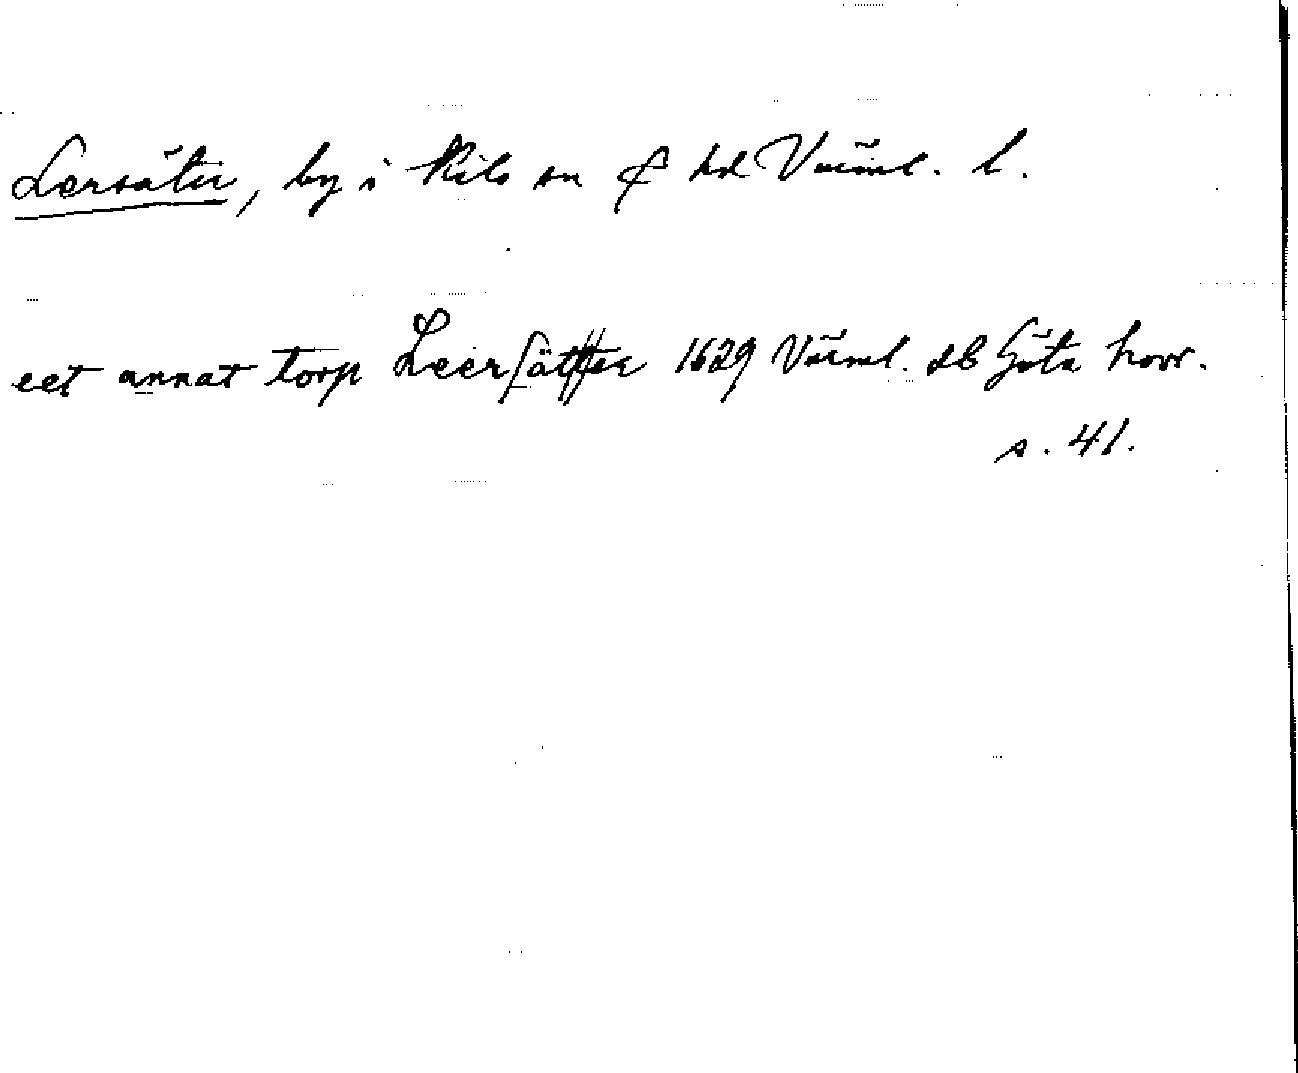 Lersäter, by i Kils sn & hd Värml. l.
eet annat torp Leersätter 1629 Värml. db Göta hovr.
s. 41.